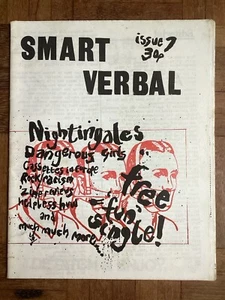 SMART
VERBAL
issue 7
30p
Nightingales
Dangerous Girls
Cassettes
Rock/racism
Zine reviews
helpless huw
and
much much more
free
fun
single!